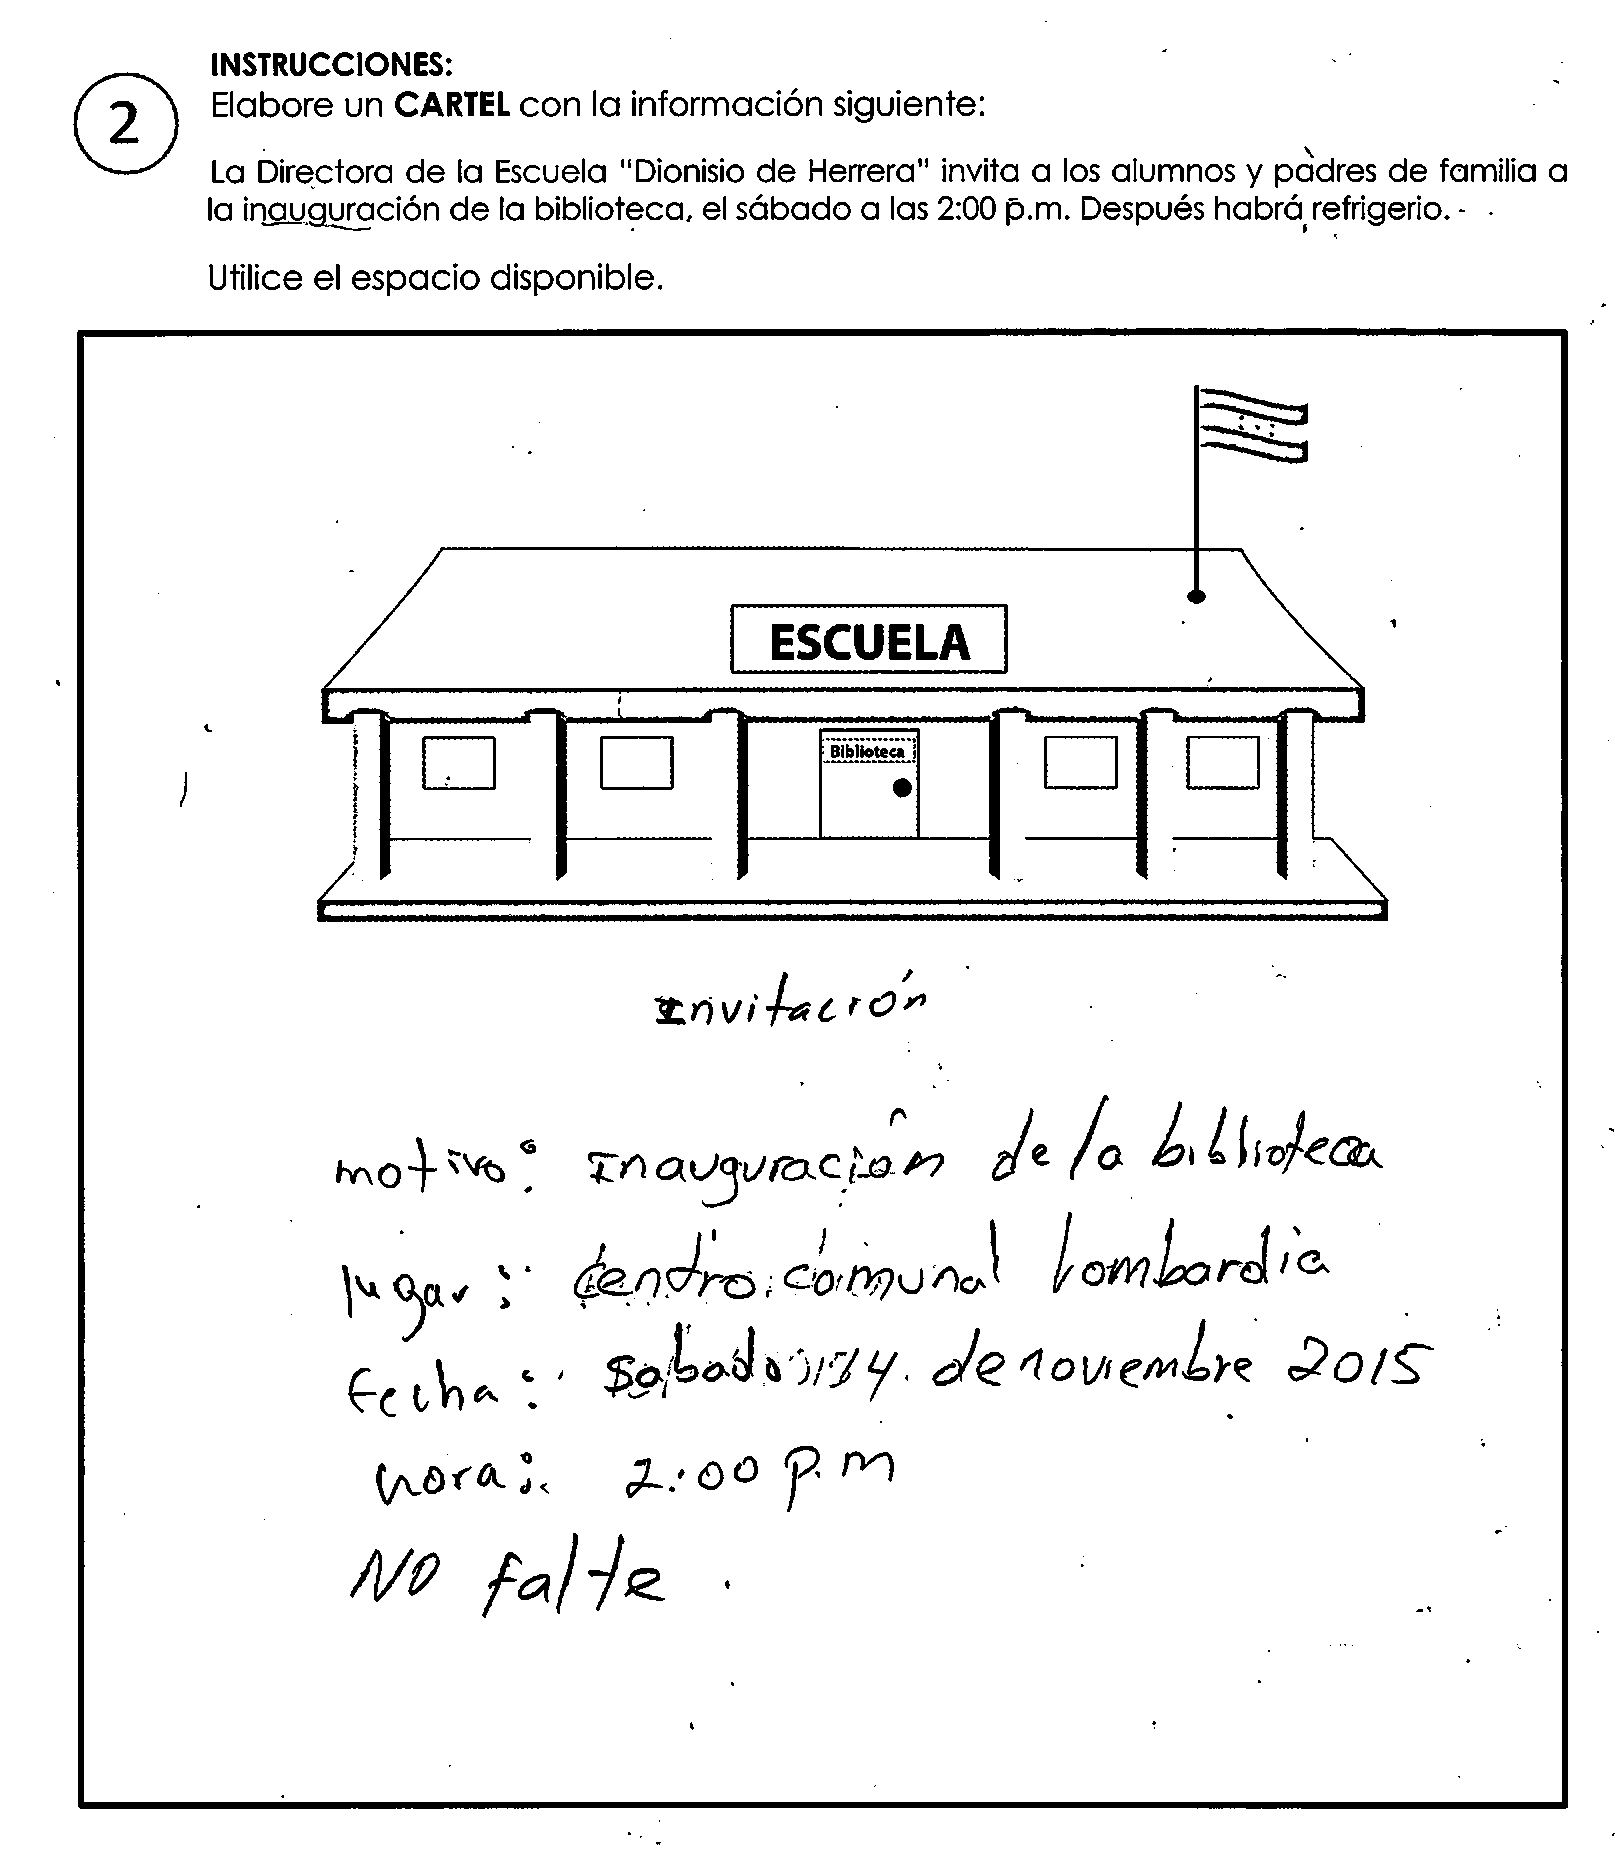 INSTRUCCIONES:
2
Elabore un CARTEL con la información siguiente:
La Directora de la Escuela "Dionisio de Herrera" invita a los alumnos y padres de familia a
la inauguración de la biblioteca, el sábado a las 2:00 p.m. Después habrá refrigerio.
Utilice el espacio disponible.
ESCUELA
Biblioteca
Invitación
motivo: Inauguración de la biblioteca
lugar: Centro comunal lombardia
fecha: Sabado 14 de noviembre 2015
hora: 2:00 p.m
NO falte.